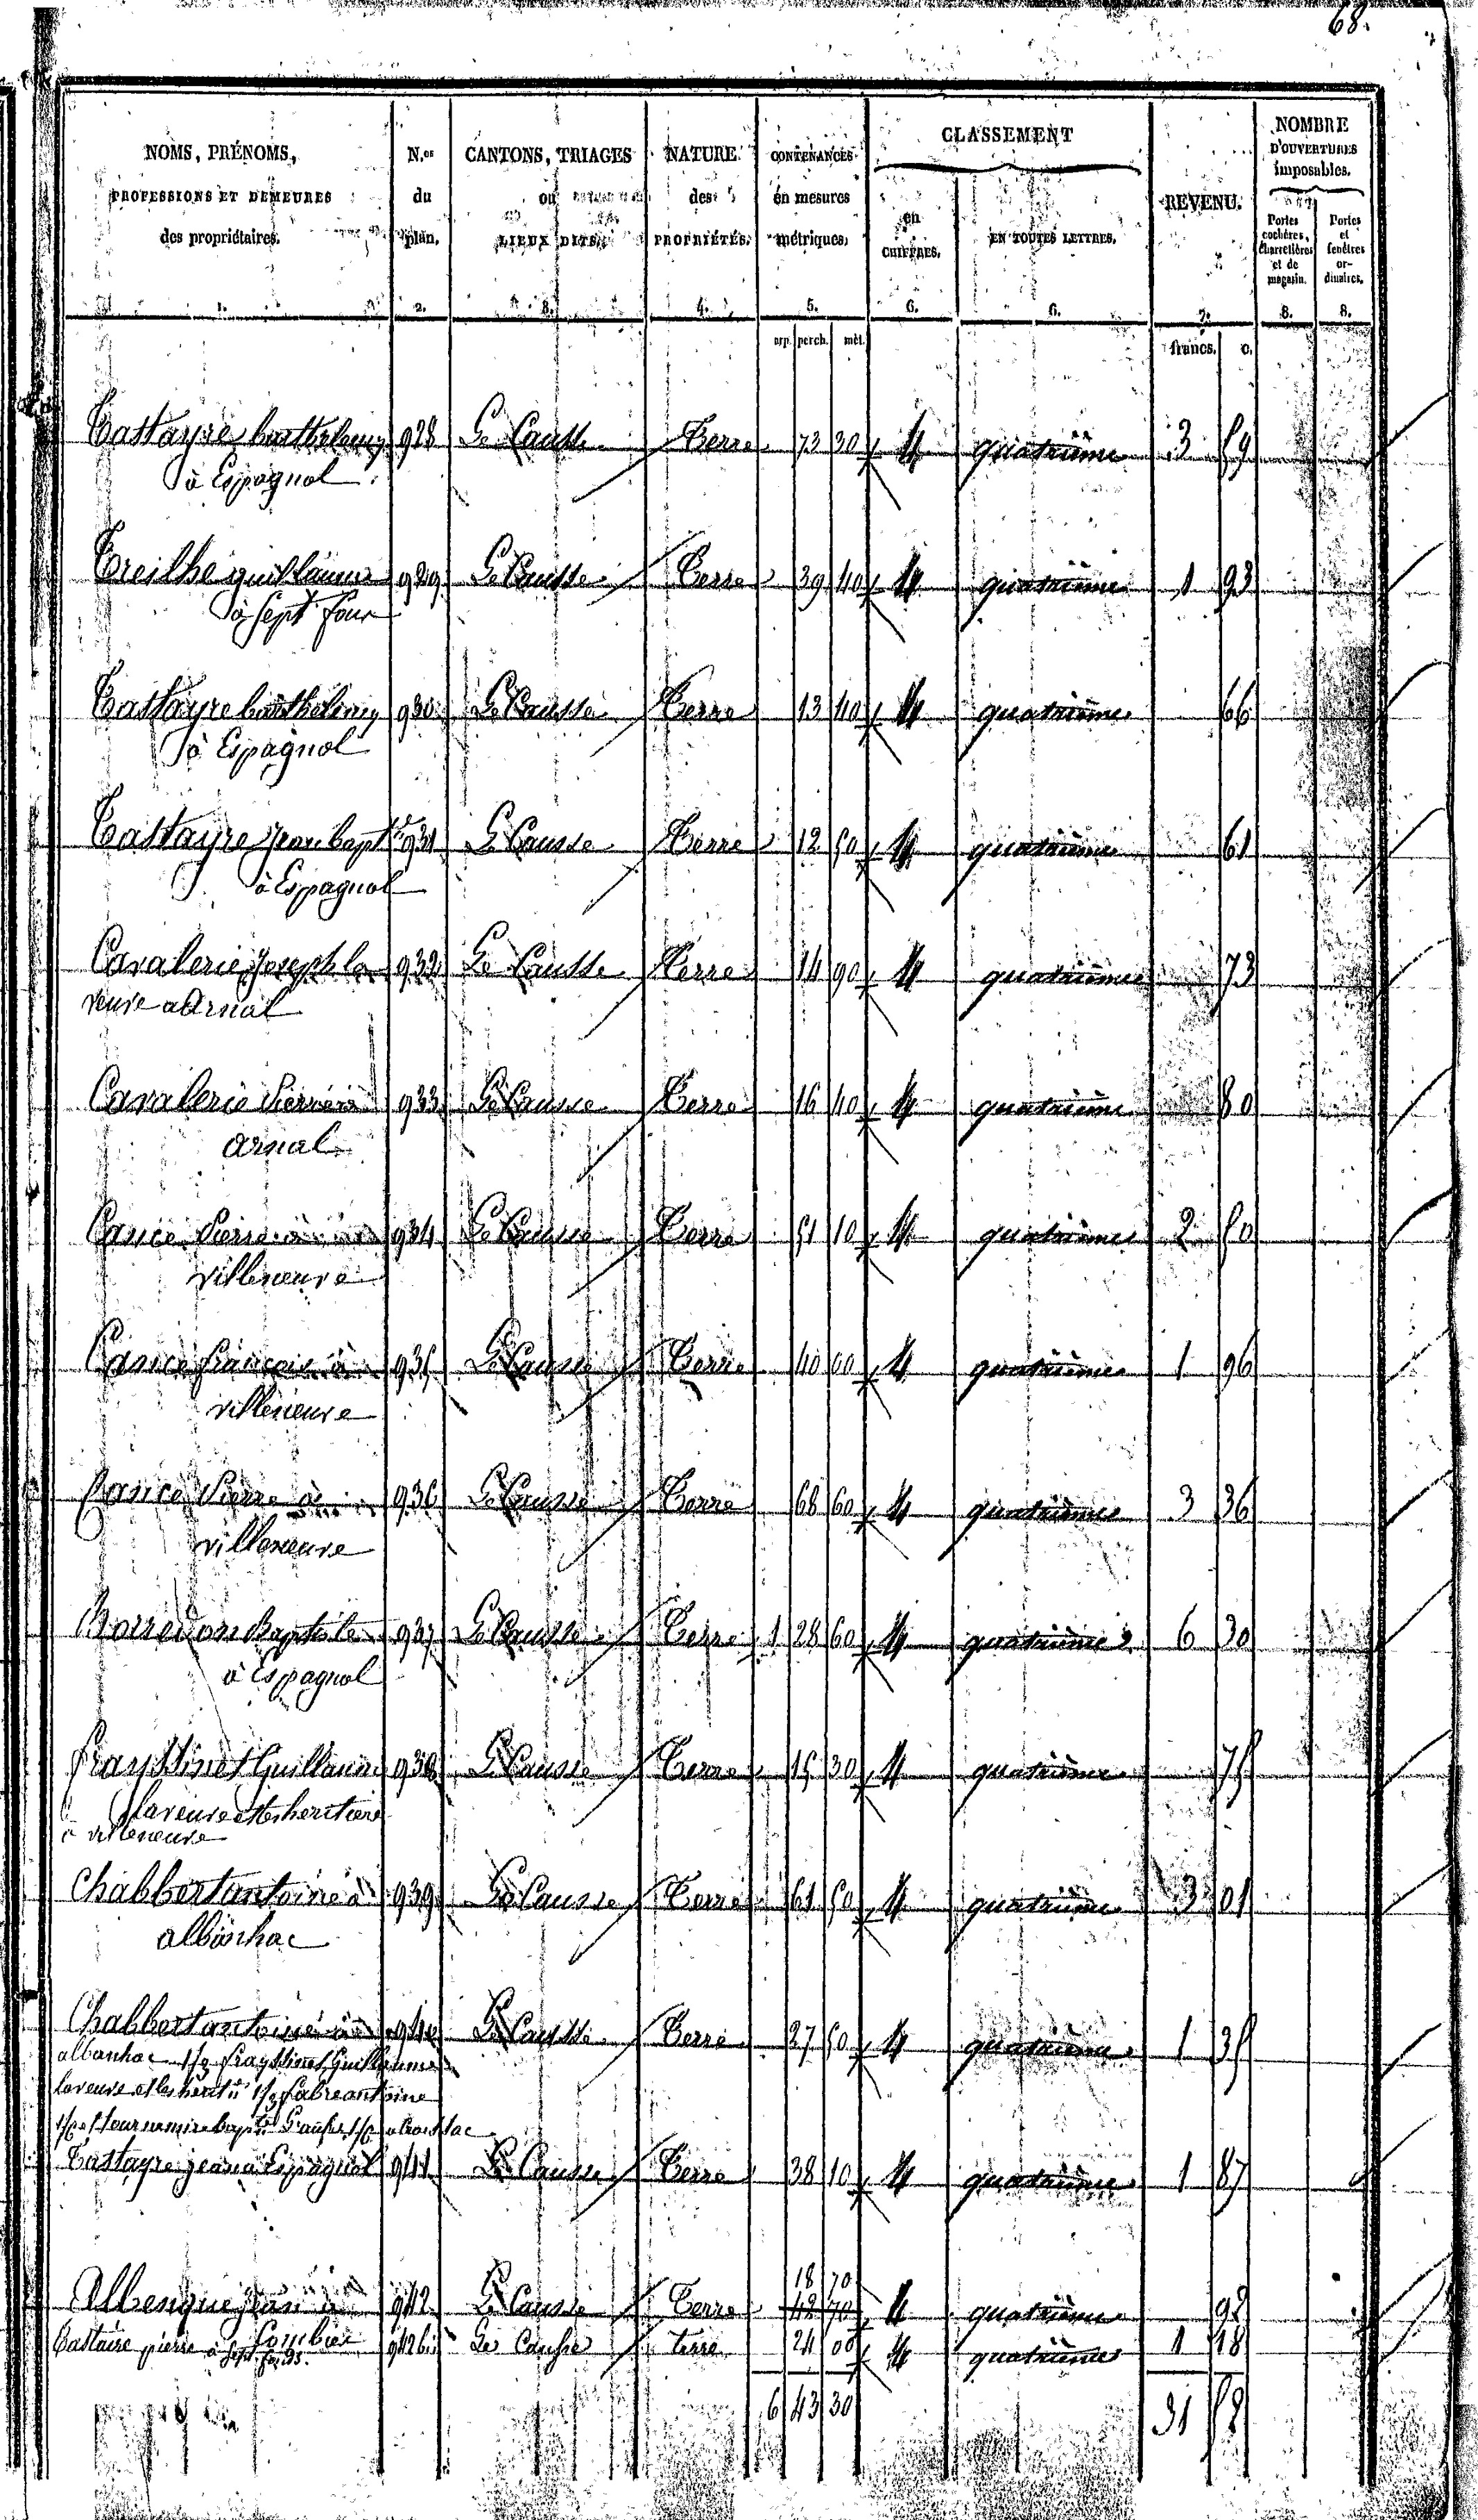 68.
NOMS, PRÉNOMS, N.os CANTONS, TRIAGES NATURE CONTENANCES CLASSEMENT REVENU. NOMBRE D'OUVERTURES imposables.
PROFESSIONS ET DEMEURES du ou des en mesures en Portes cochères, charretières et de magasin. Portes et fenêtres ordinaires.
des propriétaires. plan. LIEUX DITS. PROPRIÉTÉS. métriques. CHIFFRES. EN TOUTES LETTRES.
1. 2. 3. 4. 5. 6. 6. 7. 8. 8.
arp. perch. mèt. francs. c.
Castayre barthelemy 928 Le Causse Terre 73 30 4 quatrieme 3 59
à Espagnol
Treilhe guillaume 929 Le Causse Terre 39 40 4 quatrieme 1 93
à Sept four
Castayre barthelemy 930 Le Causse Terre 13 40 4 quatrieme 66
à Espagnol
Castayre Jean bapt.te 931 Le Causse Terre 12 50 4 quatrieme 61
à Espagnol
Cavalerie Joseph la 932 Le Causse Terre 14 90 4 quatrieme 73
veuve a Arnal
Cavalerie Pierre à 933 Le Causse Terre 16 40 4 quatrieme 80
arnal
Cance Pierre à 934 Le Causse Terre 51 10 4 quatrieme 2 50
villeneuve
Cance françois à 935 Le Causse Terre 40 00 4 quatrieme 1 96
villeneuve
Cance Pierre à 936 Le Causse Terre 68 60 4 quatrieme 3 36
villeneuve
Baptiste 937 Le Causse Terre 1 28 60 4 quatrieme 6 30
à Espagnol
frayssinet Guillaume 938 Le Causse Terre 15 30 4 quatrieme 75
la veuve et les heritiers
à villeneuve
Chabbert antoine à 939 Le Causse Terre 61 50 4 quatrieme 3 01
albanhac
Chabbert antoine à 940 Le Causse Terre 27 50 4 quatrieme 1 35
albanhac 1/2 frayssinet Guillaume
la veuve et les herit.s 1/2 fabre antoine
Castayre jean à Espagnol 941 Le Causse Terre 38 10 4 quatrieme 1 87
18 70
Albenque Jean à 942 Le Causse Terre 42 70 4 quatrieme 92
Combier
Castaire pierre à Sept fonds 942 bis Le Causse terre 24 00 4 quatrieme 1 18
6 43 30 31 52